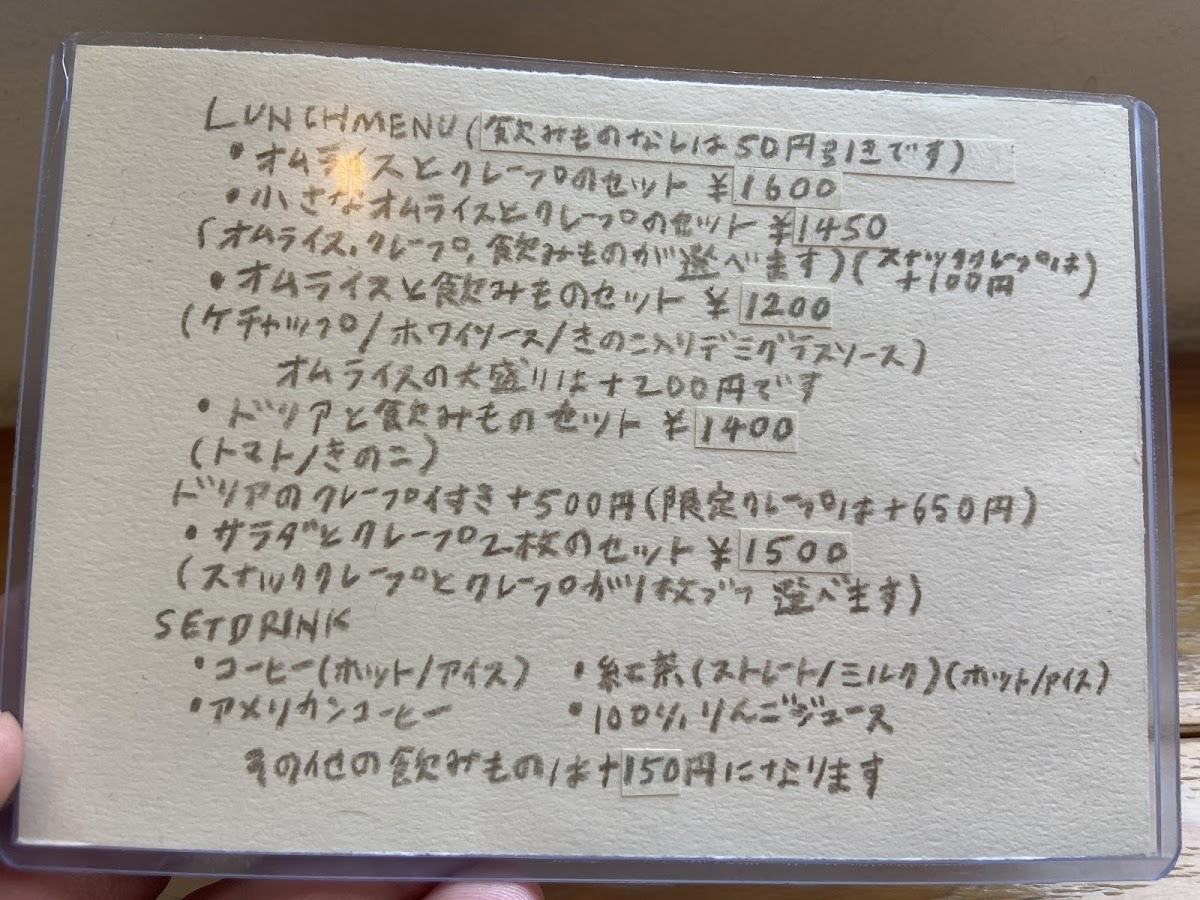 LUNCHMENU(飲みものなしは50円引きです)
・オムライスとクレープのセット ¥1600
・小さなオムライスとクレープのセット ¥1450
(オムライス,クレープ,飲みものが選べます)(スナッククレープは+100円)
・オムライスと飲みものセット ¥1200
(ケチャップ/ホワイソース/きのこ入りデミグラスソース)
オムライスの大盛りは+200円です
・ドリアと飲みものセット ¥1400
(トマト/きのこ)
ドリアのクレープ付き+500円(限定クレープは+650円)
・サラダとクレープ2枚のセット ¥1500
(スナッククレープとクレープが1枚づつ選べます)
SETDRINK
・コーヒー(ホット/アイス) ・紅茶(ストレート/ミルク)(ホット/アイス)
・アメリカンコーヒー ・100%りんごジュース
その他の飲みものは+150円になります